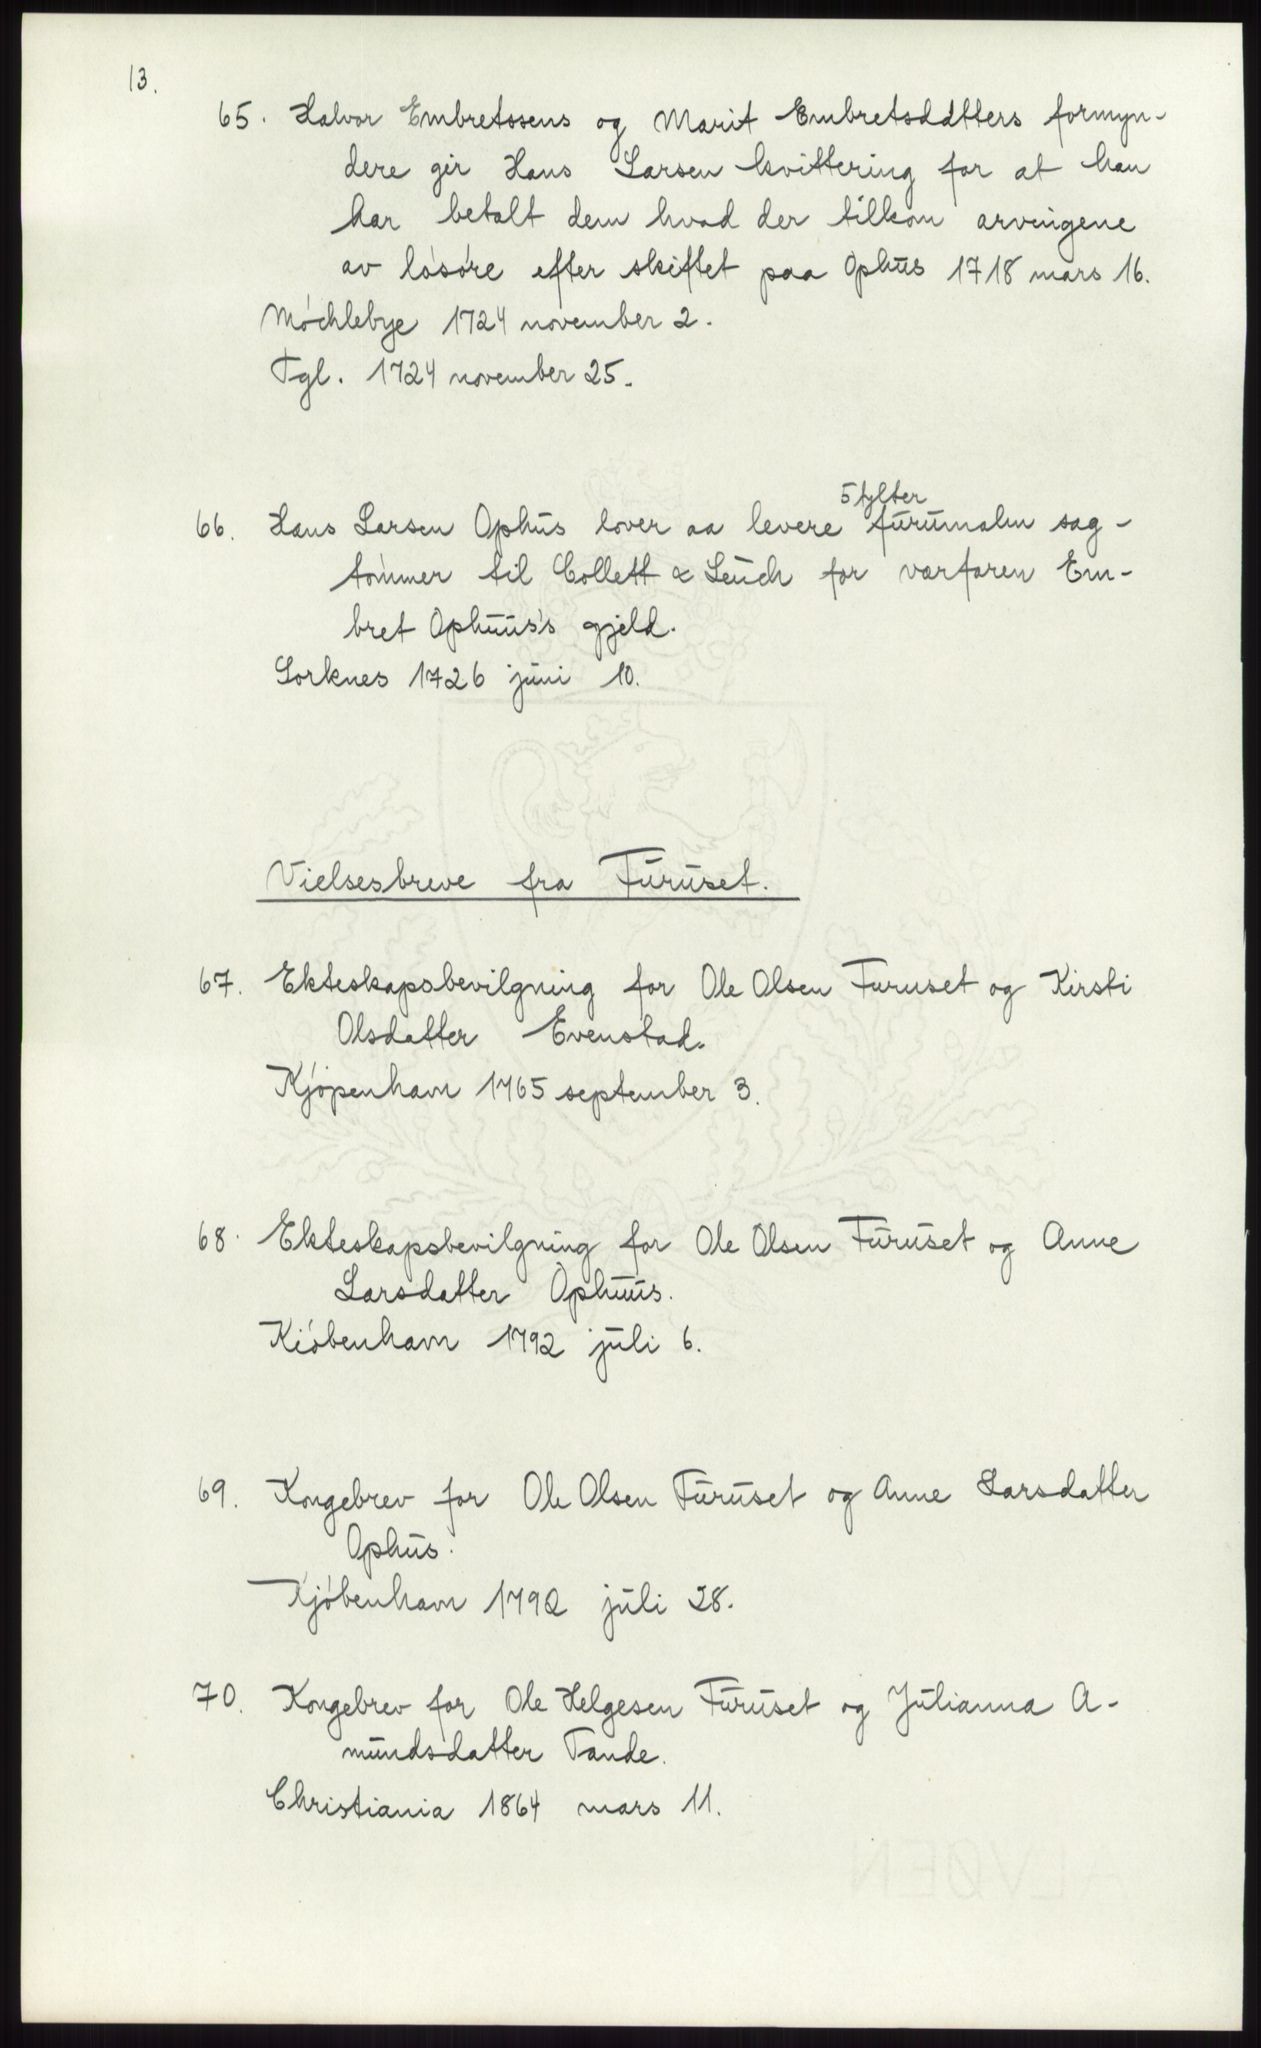 13.
65. Halvor Embretssens og Marit Embretsdatters formyn-
dere gir Hans Larsen kvittering for at han
har betalt dem hvad der tilkom arvingene
av lósóre efter skiftet paa Ophus 1718 mars 16.
Móchlebye 1724 november 2.
Tgl. 1724 november 25.
5 tylter
66. Hans Larsen Ophus lover aa levere furumalm sag-
tómmer til Collett & Leuch for værfaren Em-
bret Ophuus's gjeld.
Sorknes 1726 juni 10.
Vielsesbreve fra Furuset.
67. Ekteskapsbevilgning for Ole Olsen Furuset og Kirsti
Olsdatter Evenstad.
Kjópenhavn 1765 september 3.
68. Ekteskapsbevilgning for Ole Olsen Furuset og Anne
Larsdatter Ophuus.
Kióbenhavn 1792 juli 6.
69. Kongebrev for Ole Olsen Furuset og Anne Larsdatter
Ophus.
Kjóbenhavn 1792 juli 28.
70. Kongebrev for Ole Helgesen Furuset og Julianna A-
mundsdatter Tande.
Christiania 1864 mars 11.
ALVØEN